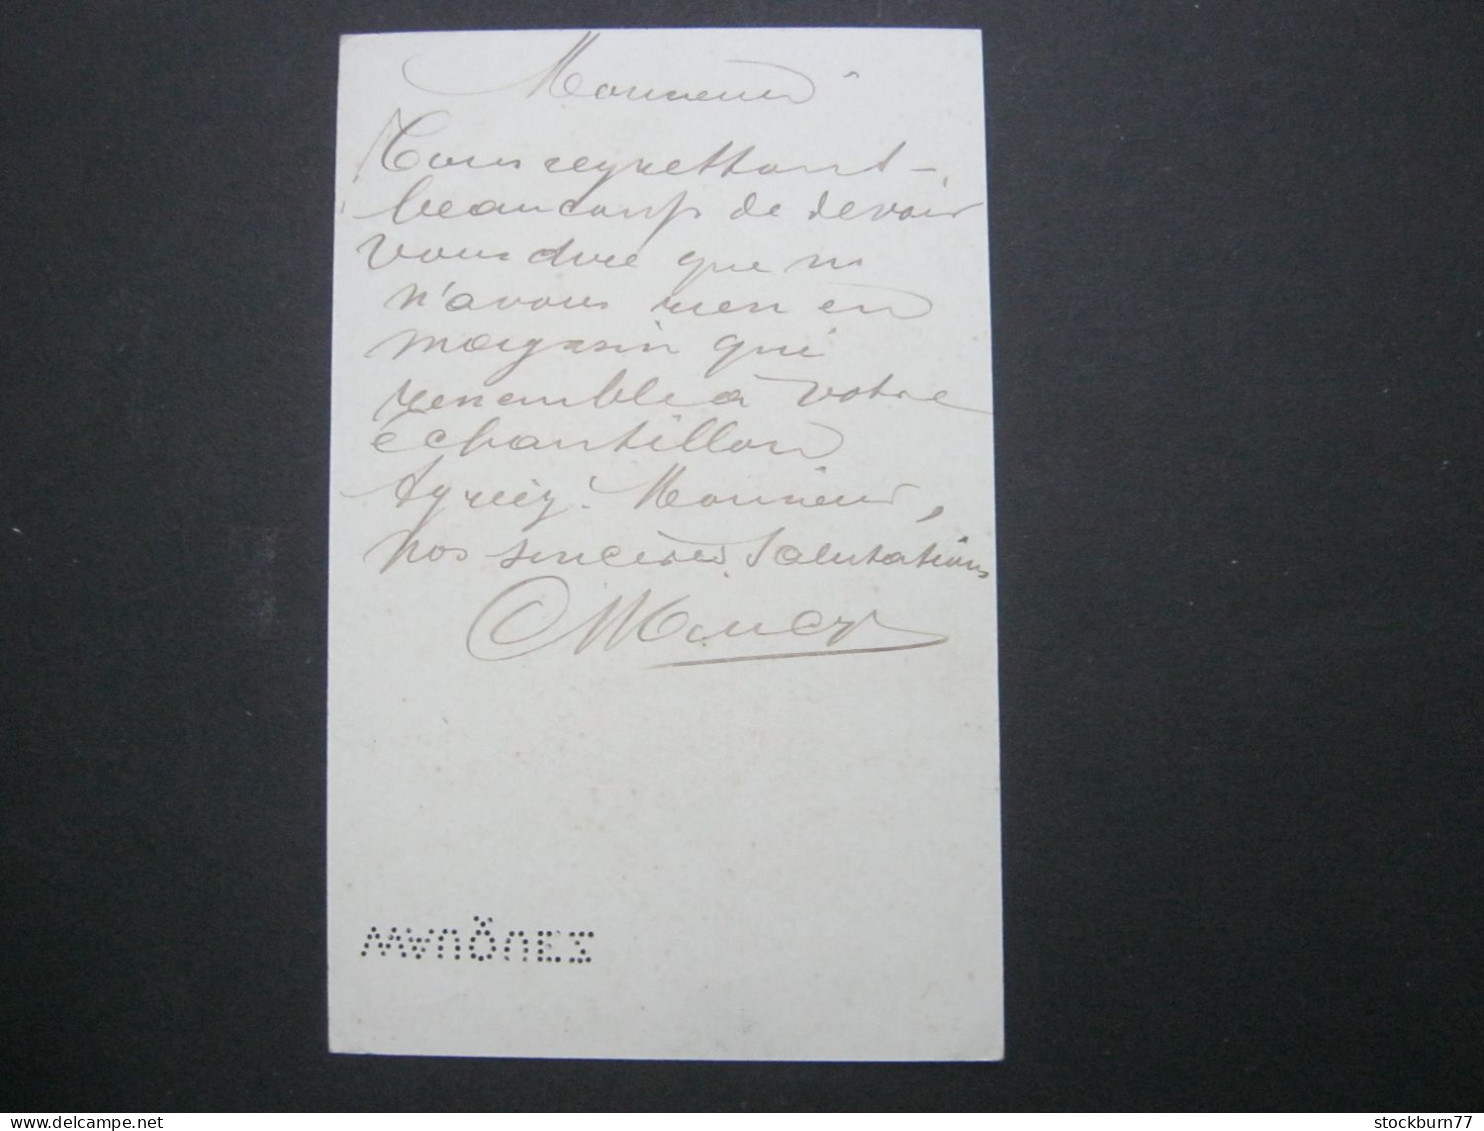 Monsieur
regrettant
beaucoup de devoir
vous dire que n
n'avons rien en
magasin qui
resemble à votre
échantillon
Agréez! Monsieur,
nos sincères Salutations
stockburn77